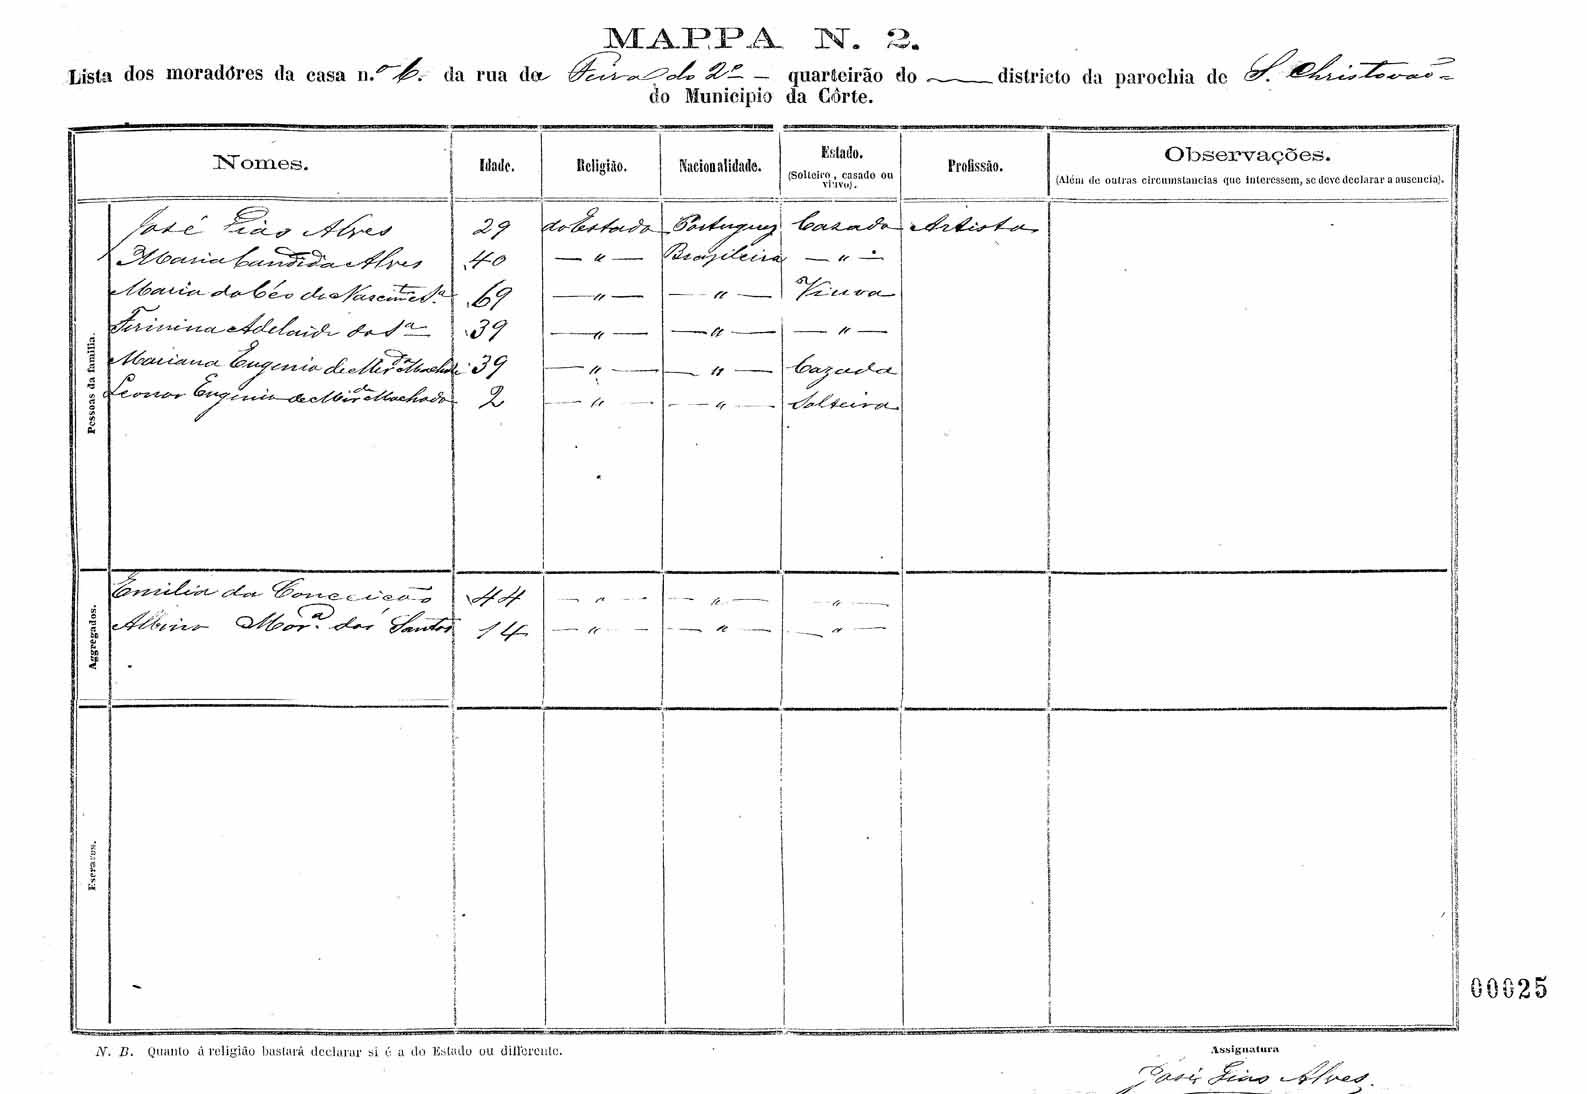 MAPPA N. 2.
Lista dos moradôres da casa n.º 6. da rua da Feira do 2º quarteirão do districto da parochia de S. Christovão
do Municipio da Côrte.
Nomes. Idade. Religião. Nacionalidade. Estado. (Solteiro, casado ou viuvo). Profissão. Observações. (Além de outras circumstancias que interessem, se deve declarar a ausencia).
Pessoas da familia.
José Alves 29 do Estado Portuguez Cazado Artista
Maria Candida Alves 40 — " — Brazileira — " —
Maria do Céo do Nascimto 69 — " — — " — Viuva
Adelaide 39 — " — — " — — " —
Mariana Eugenia de Mirda Machado 39 — " — — " — Cazada
Leonor Eugenia de Mirda Machado 2 — " — — " — Solteira
Aggregados.
Emilia da Conceicão 44 — " — — " — — " —
Albino Mora. dos Santos 14 — " — — " — — " —
Escravos.
00025
N. B. Quanto á religião bastará declarar si é a do Estado ou differente.
Assignatura
José Alves.